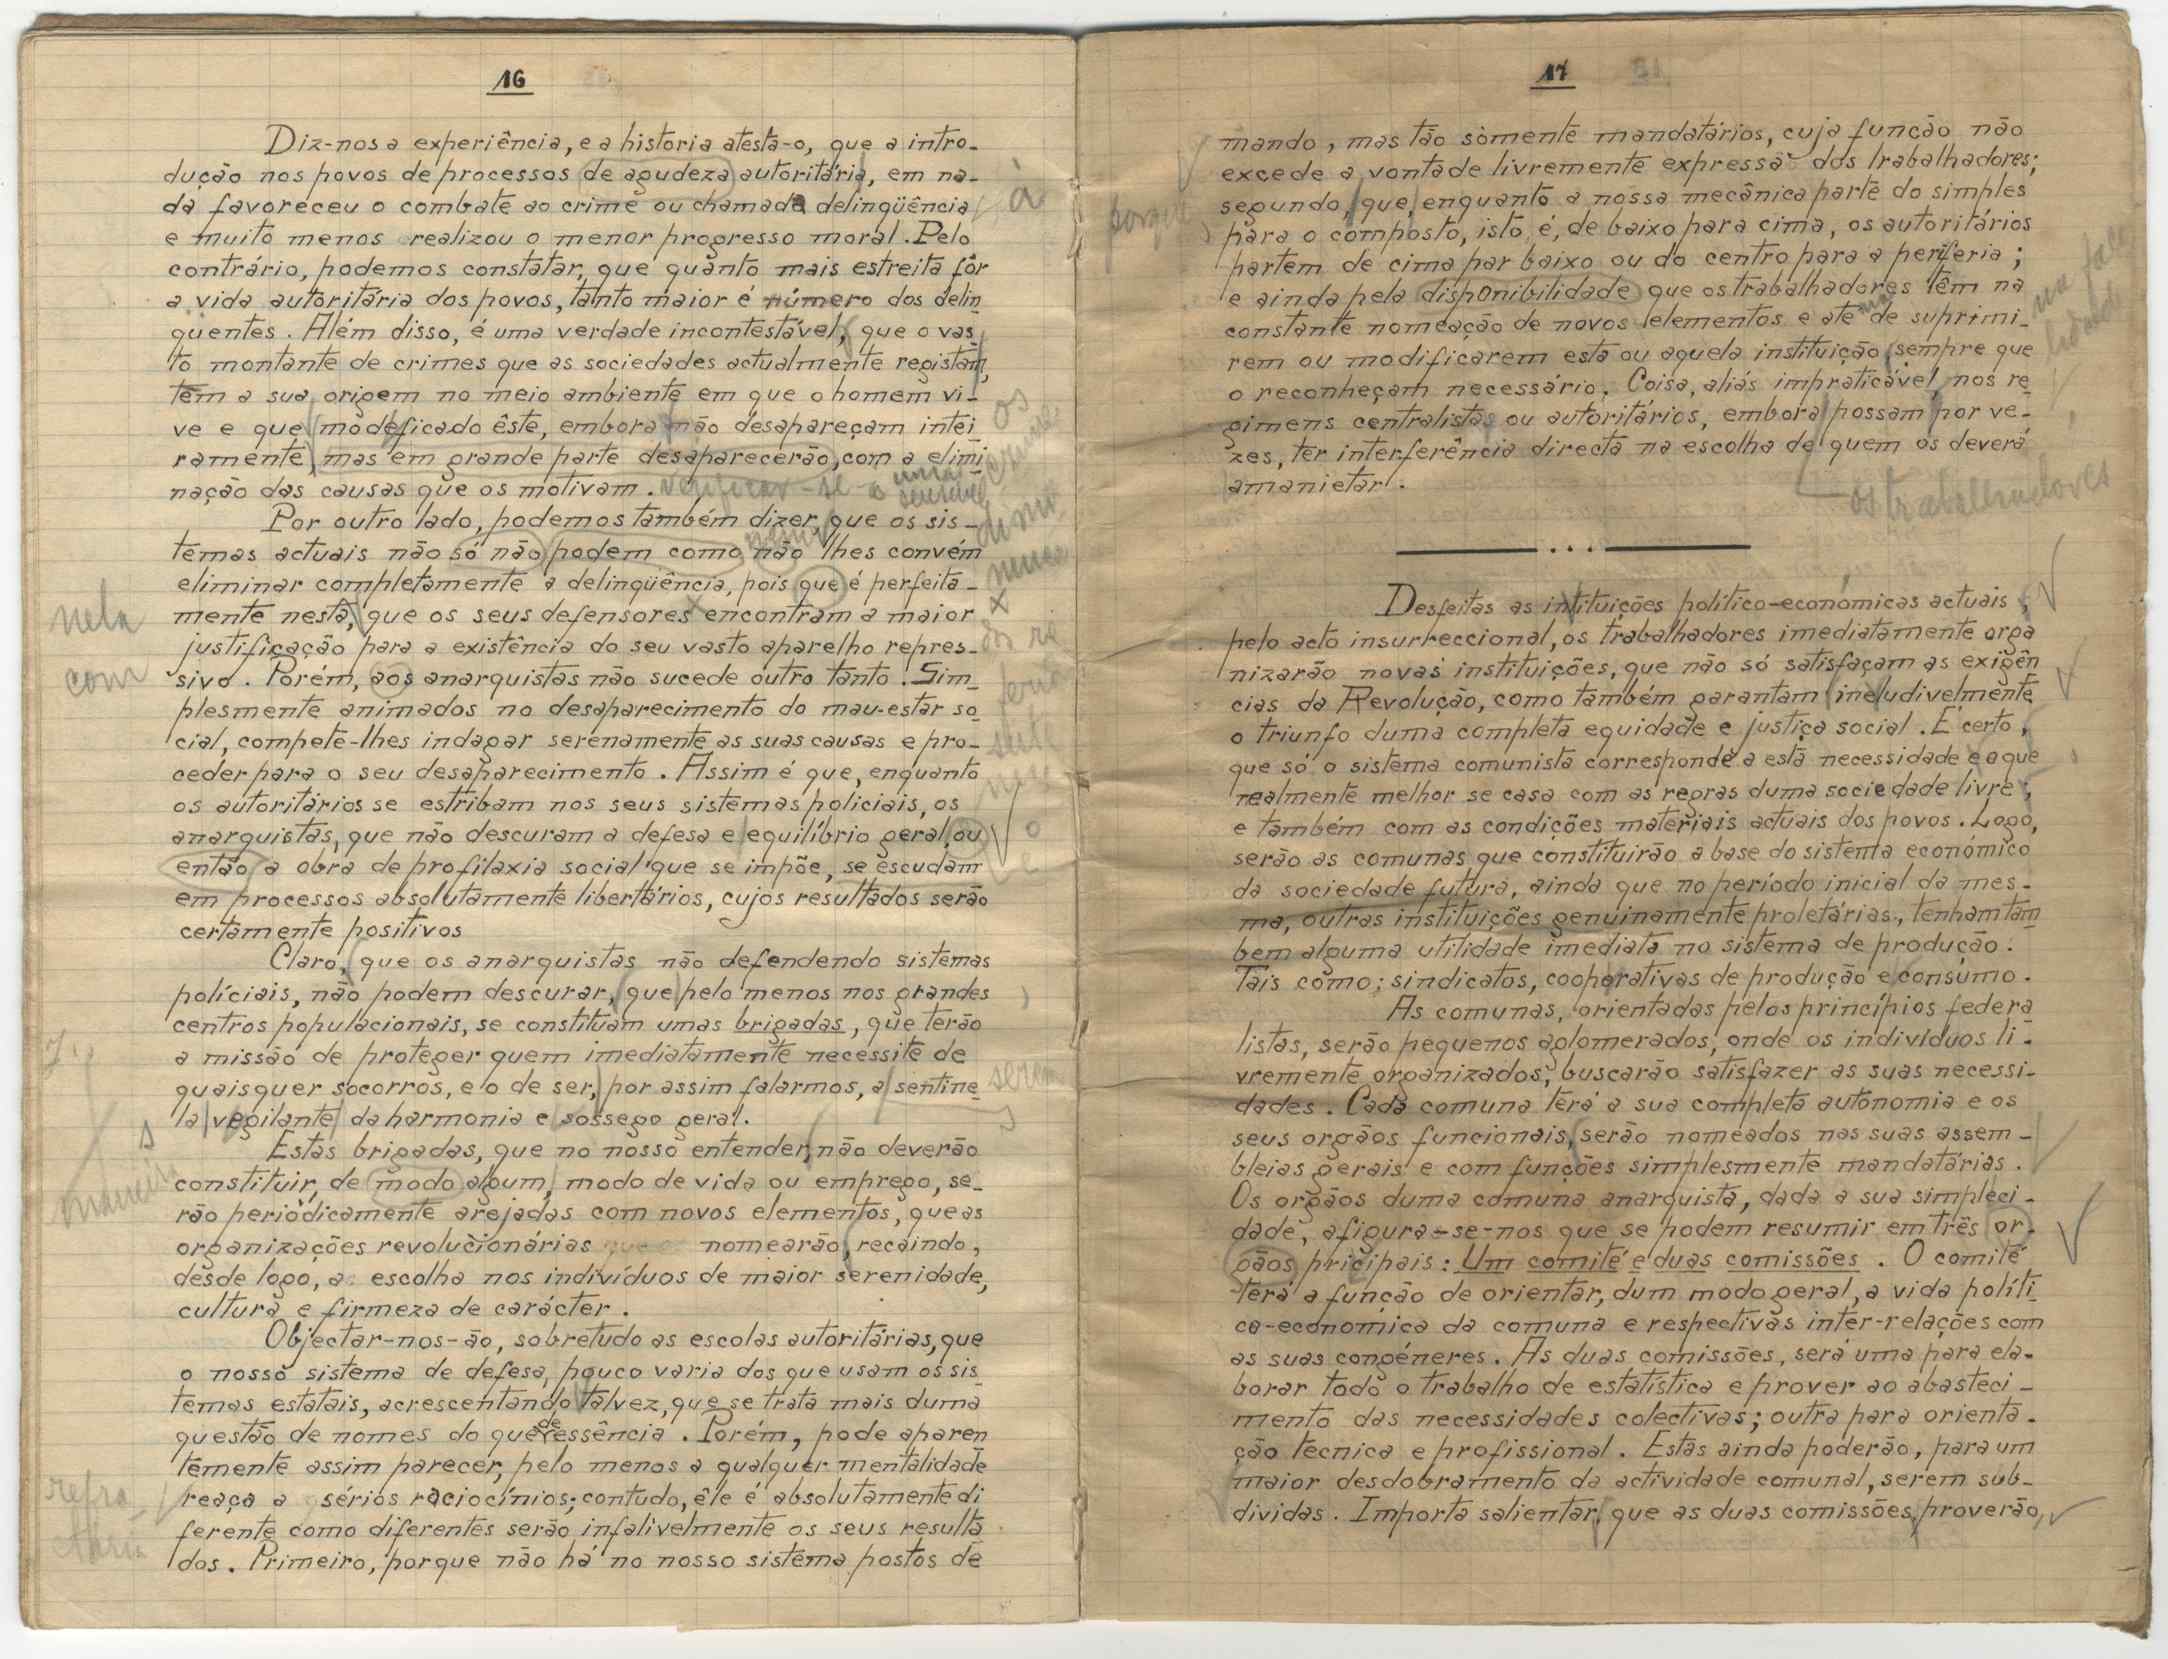 16
Diz-nos a experiência, e a historia atesta-o, que a intro-
dução nos povos de processos de agudeza autoritária, em na-
da favoreceu o combate ao crime ou chamada delinqüência à
e muito menos realizou o menor progresso moral. Pelo
contrário, podemos constatar, que quanto mais estreita fôr
a vida autoritária dos povos, tanto maior é número dos delin
quentes. Além disso, é uma verdade incontestável, que o vas
to montante de crimes que as sociedades actualmente registam,
têm a sua origem no meio ambiente em que o homem vi-
ve e que modeficado êste, embora não desapareçam intei os
ramente, mas em grande parte desaparecerão, com a elimi
nação das causas que os motivam. verificar-se-a uma sensivel
Por outro lado, podemos também dizer, que os sis-
temas actuais não só não podem como não lhes convém
eliminar completamente a delinqüência, pois que é perfeita-
nela mente nesta, que os seus defensores x encontram a maior x
justificação para a existência do seu vasto aparelho repres-
com sivo. Porém, aos anarquistas não sucede outro tanto. Sim-
plesmente animados no desaparecimento do mau-estar so
cial, compete-lhes indagar serenamente as suas causas e pro-
ceder para o seu desaparecimento. Assim é que, enquanto
os autoritários se estribam nos seus sistemas policiais, os
anarquistas, que não descuram a defesa e equilíbrio geral, ou o
então a obra de profilaxia social que se impõe, se escudam
em processos absolutamente libertários, cujos resultados serão
certamente positivos
Claro, que os anarquistas não defendendo sistemas
políciais, não podem descurar, que pelo menos nos grandes
centros populacionais, se constituam umas brigadas, que terão
a missão de proteger quem imediatamente necessite de
quaisquer socorros, e o de ser, por assim falarmos, a sentine serem
la vegilante da harmonia e sossego geral.
s
Estas brigadas, que no nosso entender, não deverão
maneira constituir, de modo algum, modo de vida ou emprego, se-
rão periòdicamente arejadas com novos elementos, que as
organizações revolucionárias nomearão, recaindo,
desde logo, a escolha nos indivíduos de maior serenidade,
cultura e firmeza de carácter.
Objectar-nos-ão, sobretudo as escolas autoritárias, que
o nosso sistema de defesa, pouco varia dos que usam os sis
temas estatais, acrescentando talvez, que se trata mais duma
questão de nomes do que de essência. Porém, pode aparen
temente assim parecer, pelo menos a qualquer mentalidade
reaça a sérios raciocínios; contudo, êle é absolutamente di
ferente como diferentes serão infalivelmente os seus resulta
dos. Primeiro, porque não há no nosso sistema postos de
17
mando, mas tão sòmente mandatários, cuja função não
excede a vontade livremente expressa dos trabalhadores;
porque segundo, que, enquanto a nossa mecânica parte do simples
para o composto, isto é, de baixo para cima, os autoritários
partem de cima par baixo ou do centro para a periferia;
e ainda pela disponibilidade que os trabalhadores têm na
constante nomeação de novos elementos e até na de suprimi-
rem ou modificarem esta ou aquela instituição, sempre que
o reconheçam necessário. Coisa, aliás impraticável, nos re
gimens centralistas ou autoritários, embora possam por ve-
zes, ter interferência directa na escolha de quem os deverá
amanietar.
os trabalhadores
Desfeitas as intituições político-económicas actuais,
pelo acto insurreccional, os trabalhadores imediatamente orga
nizarão novas instituições, que não só satisfaçam as exigên
cias da Revolução, como também garantam ineludivelmente
o triunfo duma completa equidade e justiça social. É certo,
que só o sistema comunista corresponde a esta necessidade e o que
realmente melhor se casa com as regras duma sociedade livre,
e também com as condições materiais actuais dos povos. Logo,
serão as comunas que constituirão a base do sistema económico
da sociedade futura, ainda que no período inicial da mes-
ma, outras instituições genuinamente proletárias, tenham tam
bem alguma utilidade imediata no sistema de produção.
Tais como: sindicatos, cooporativas de produção e consumo.
As comunas, orientadas pelos princípios federa
listas, serão pequenos aglomerados, onde os indivíduos li-
vremente organizados, buscarão satisfazer as suas necessi-
dades. Cada comuna terá a sua completa autonomia e os
seus orgãos funcionais, serão nomeados nas suas assem-
bleias gerais e com funções simplesmente mandatárias.
Os orgãos duma comuna anarquista, dada a sua simpleci-
dade, afigura-se-nos que se podem resumir em três or-
gãos pricipais: Um comité e duas comissões. O comité
terá a função de orientar, dum modo geral, a vida políti
co-economica da comuna e respectivas inter-relações com
as suas congéneres. As duas comissões, será uma para ela-
borar todo o trabalho de estatística e prover ao abasteci-
mento das necessidades colectivas; outra para orienta-
ção técnica e profissional. Estas ainda poderão, para um
maior desdobramento da actividade comunal, serem sub-
dividas. Importa salientar, que as duas comissões, proverão,